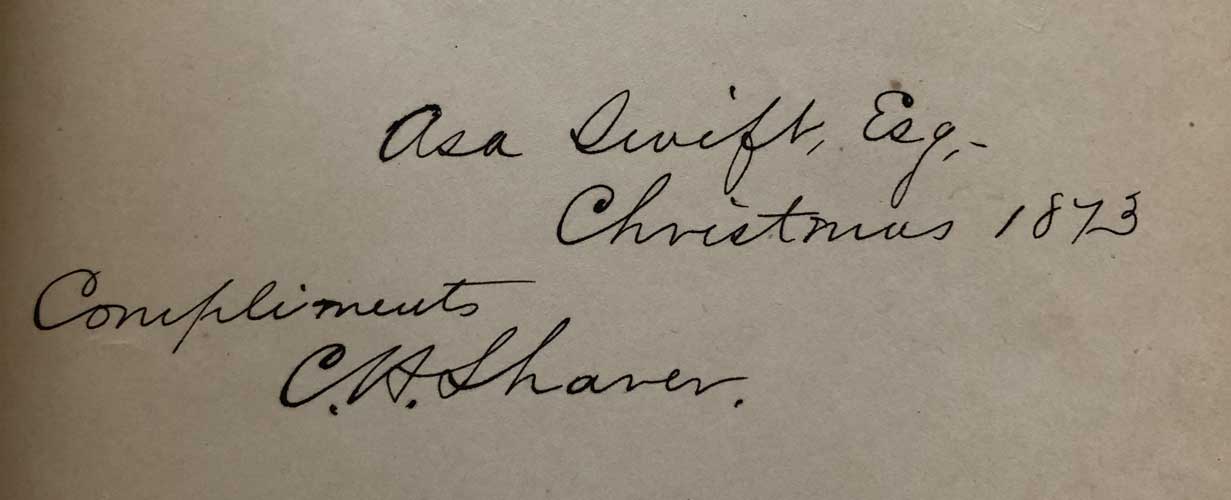 Asa Swift, Esq,-
Christmas 1873
Compliments
C.H. Shaver.